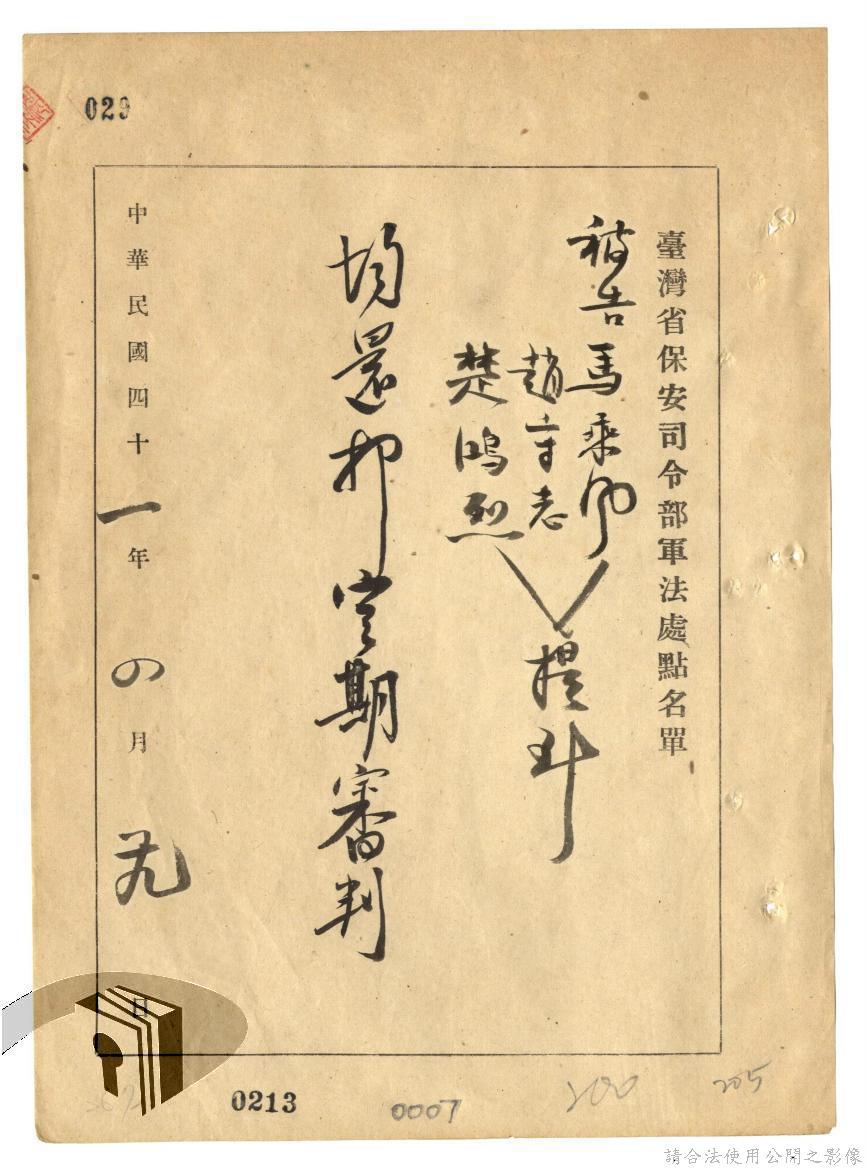 029
臺灣省保安司令部軍法處點名單
被告馬乘風
趙守志
楚鴻烈
提到
均還押定期審判
中華民國四十一年四月廿九日
0213
0007
200
205
請合法使用公開之影像